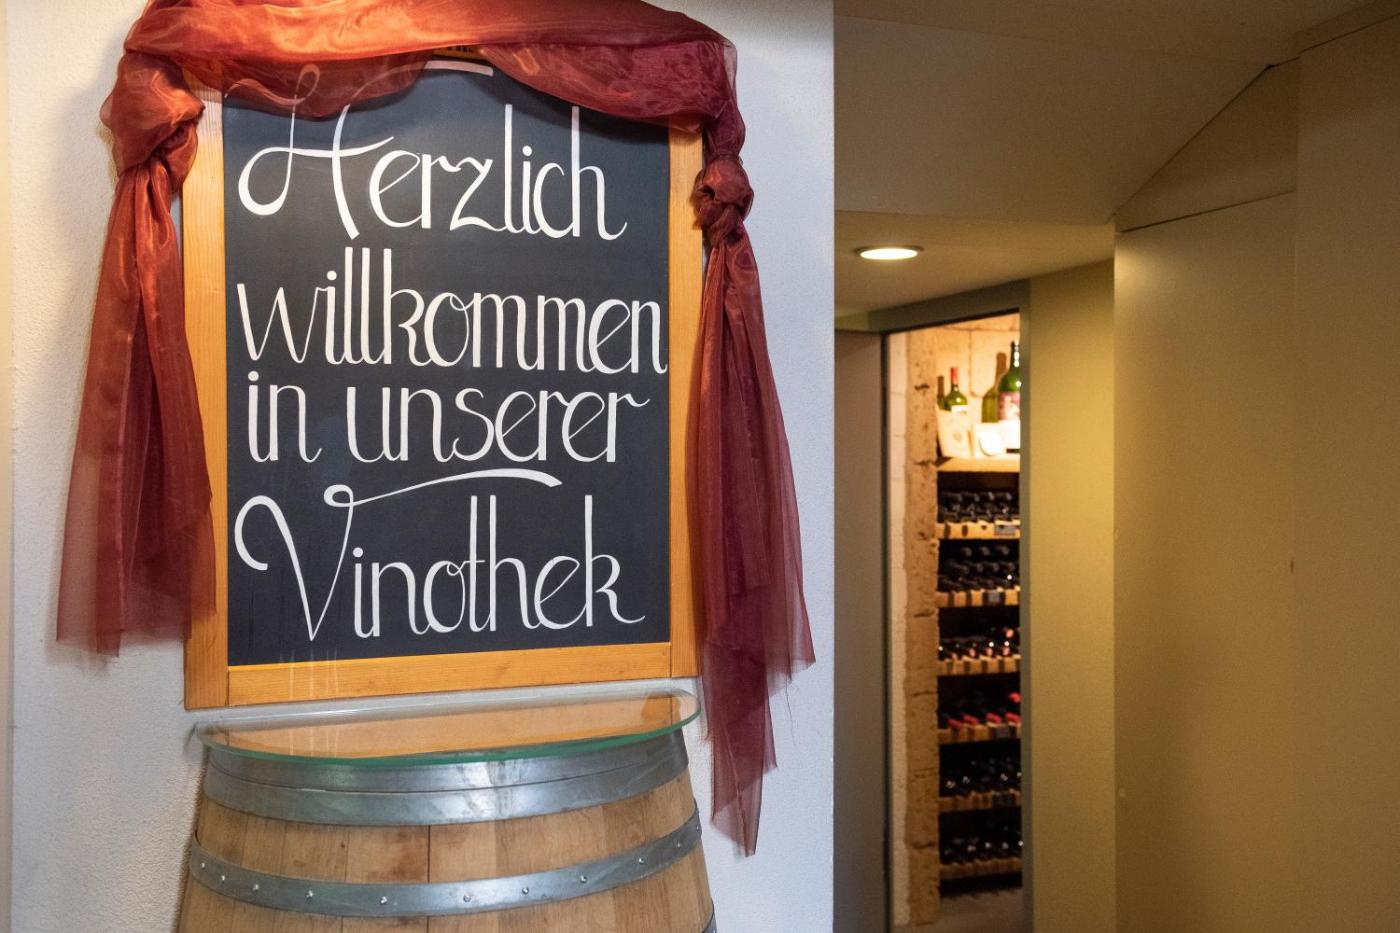 Herzlich
willkommen
in unserer
Vinothek